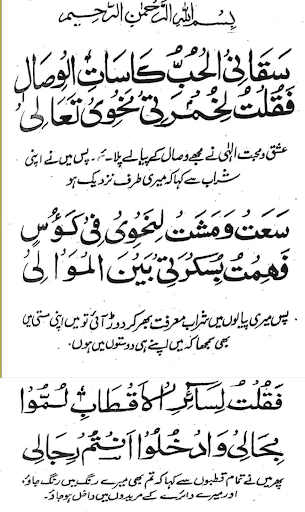 بِسْمِ اللهِ الرَّحْمٰنِ الرَّحِيْمِ
سَقَانِي الْحُبُّ كَاسَاتِ الْوِصَالِ
فَقُلْتُ لِخَمْرَتِيْ نَحْوِيْ تَعَالِيْ
عشق ومحبت الٰہی نے مجھے وصال کے پیالے پلائے پس میں نے اپنی
شراب سے کہا کہ میری طرف نزدیک ہو
سَعَتْ وَمَشَتْ لِنَحْوِيْ فِيْ كَؤُسٍ
فَهِمْتُ بِسُكْرَتِيْ بَيْنَ الْمَوَالِيْ
پس میری پیالوں میں شراب معرفت بھر کر دوڑ آئی تو میں اپنی مستی میں
بھی سمجھا کہ میں اپنے ہی دوستوں میں ہوں۔
فَقُلْتُ لِسَائِرِ الْاَقْطَابِ لُمُّوْا
بِحَالِيْ وَادْخُلُوْا اَنْتُمْ رِجَالِيْ
پھر میں نے تمام قطبوں سے کہا کہ تم بھی میرے رنگ میں رنگ جاؤ،
اور میرے دائرے کے مریدوں میں داخل ہو جاؤ۔